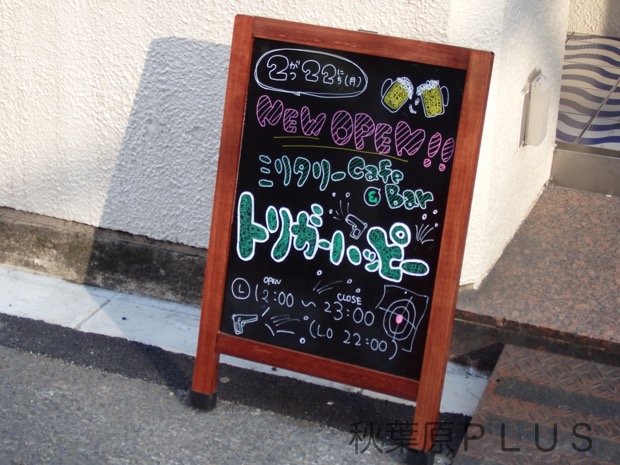 2がつ22にち(月)
NEW OPEN!!
ミリタリーCafe
& Bar
トリガーハッピー
OPEN CLOSE
Ⓛ 12:00 〜 23:00
(LO 22:00)
秋葉原PLUS